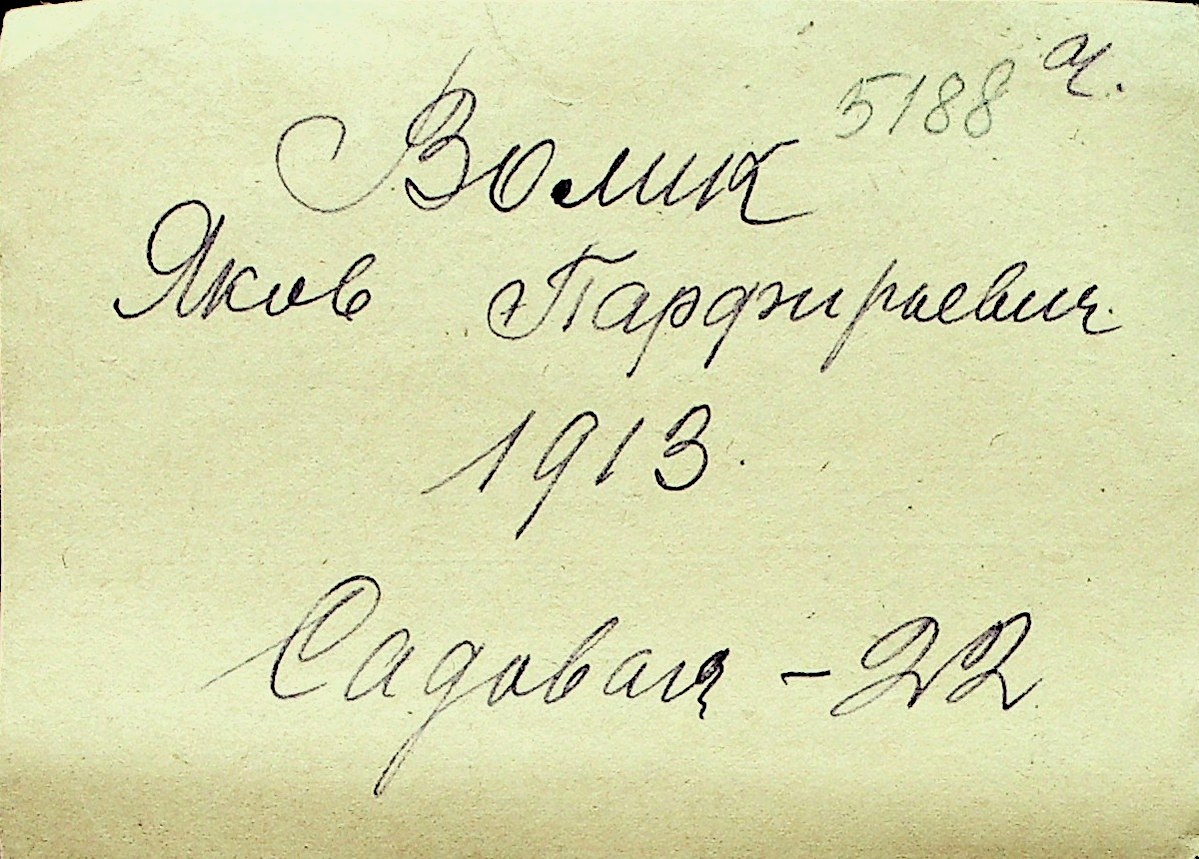 5188 ч.
Волик
Яков Парфирьевич
1913.
Садовая - 22